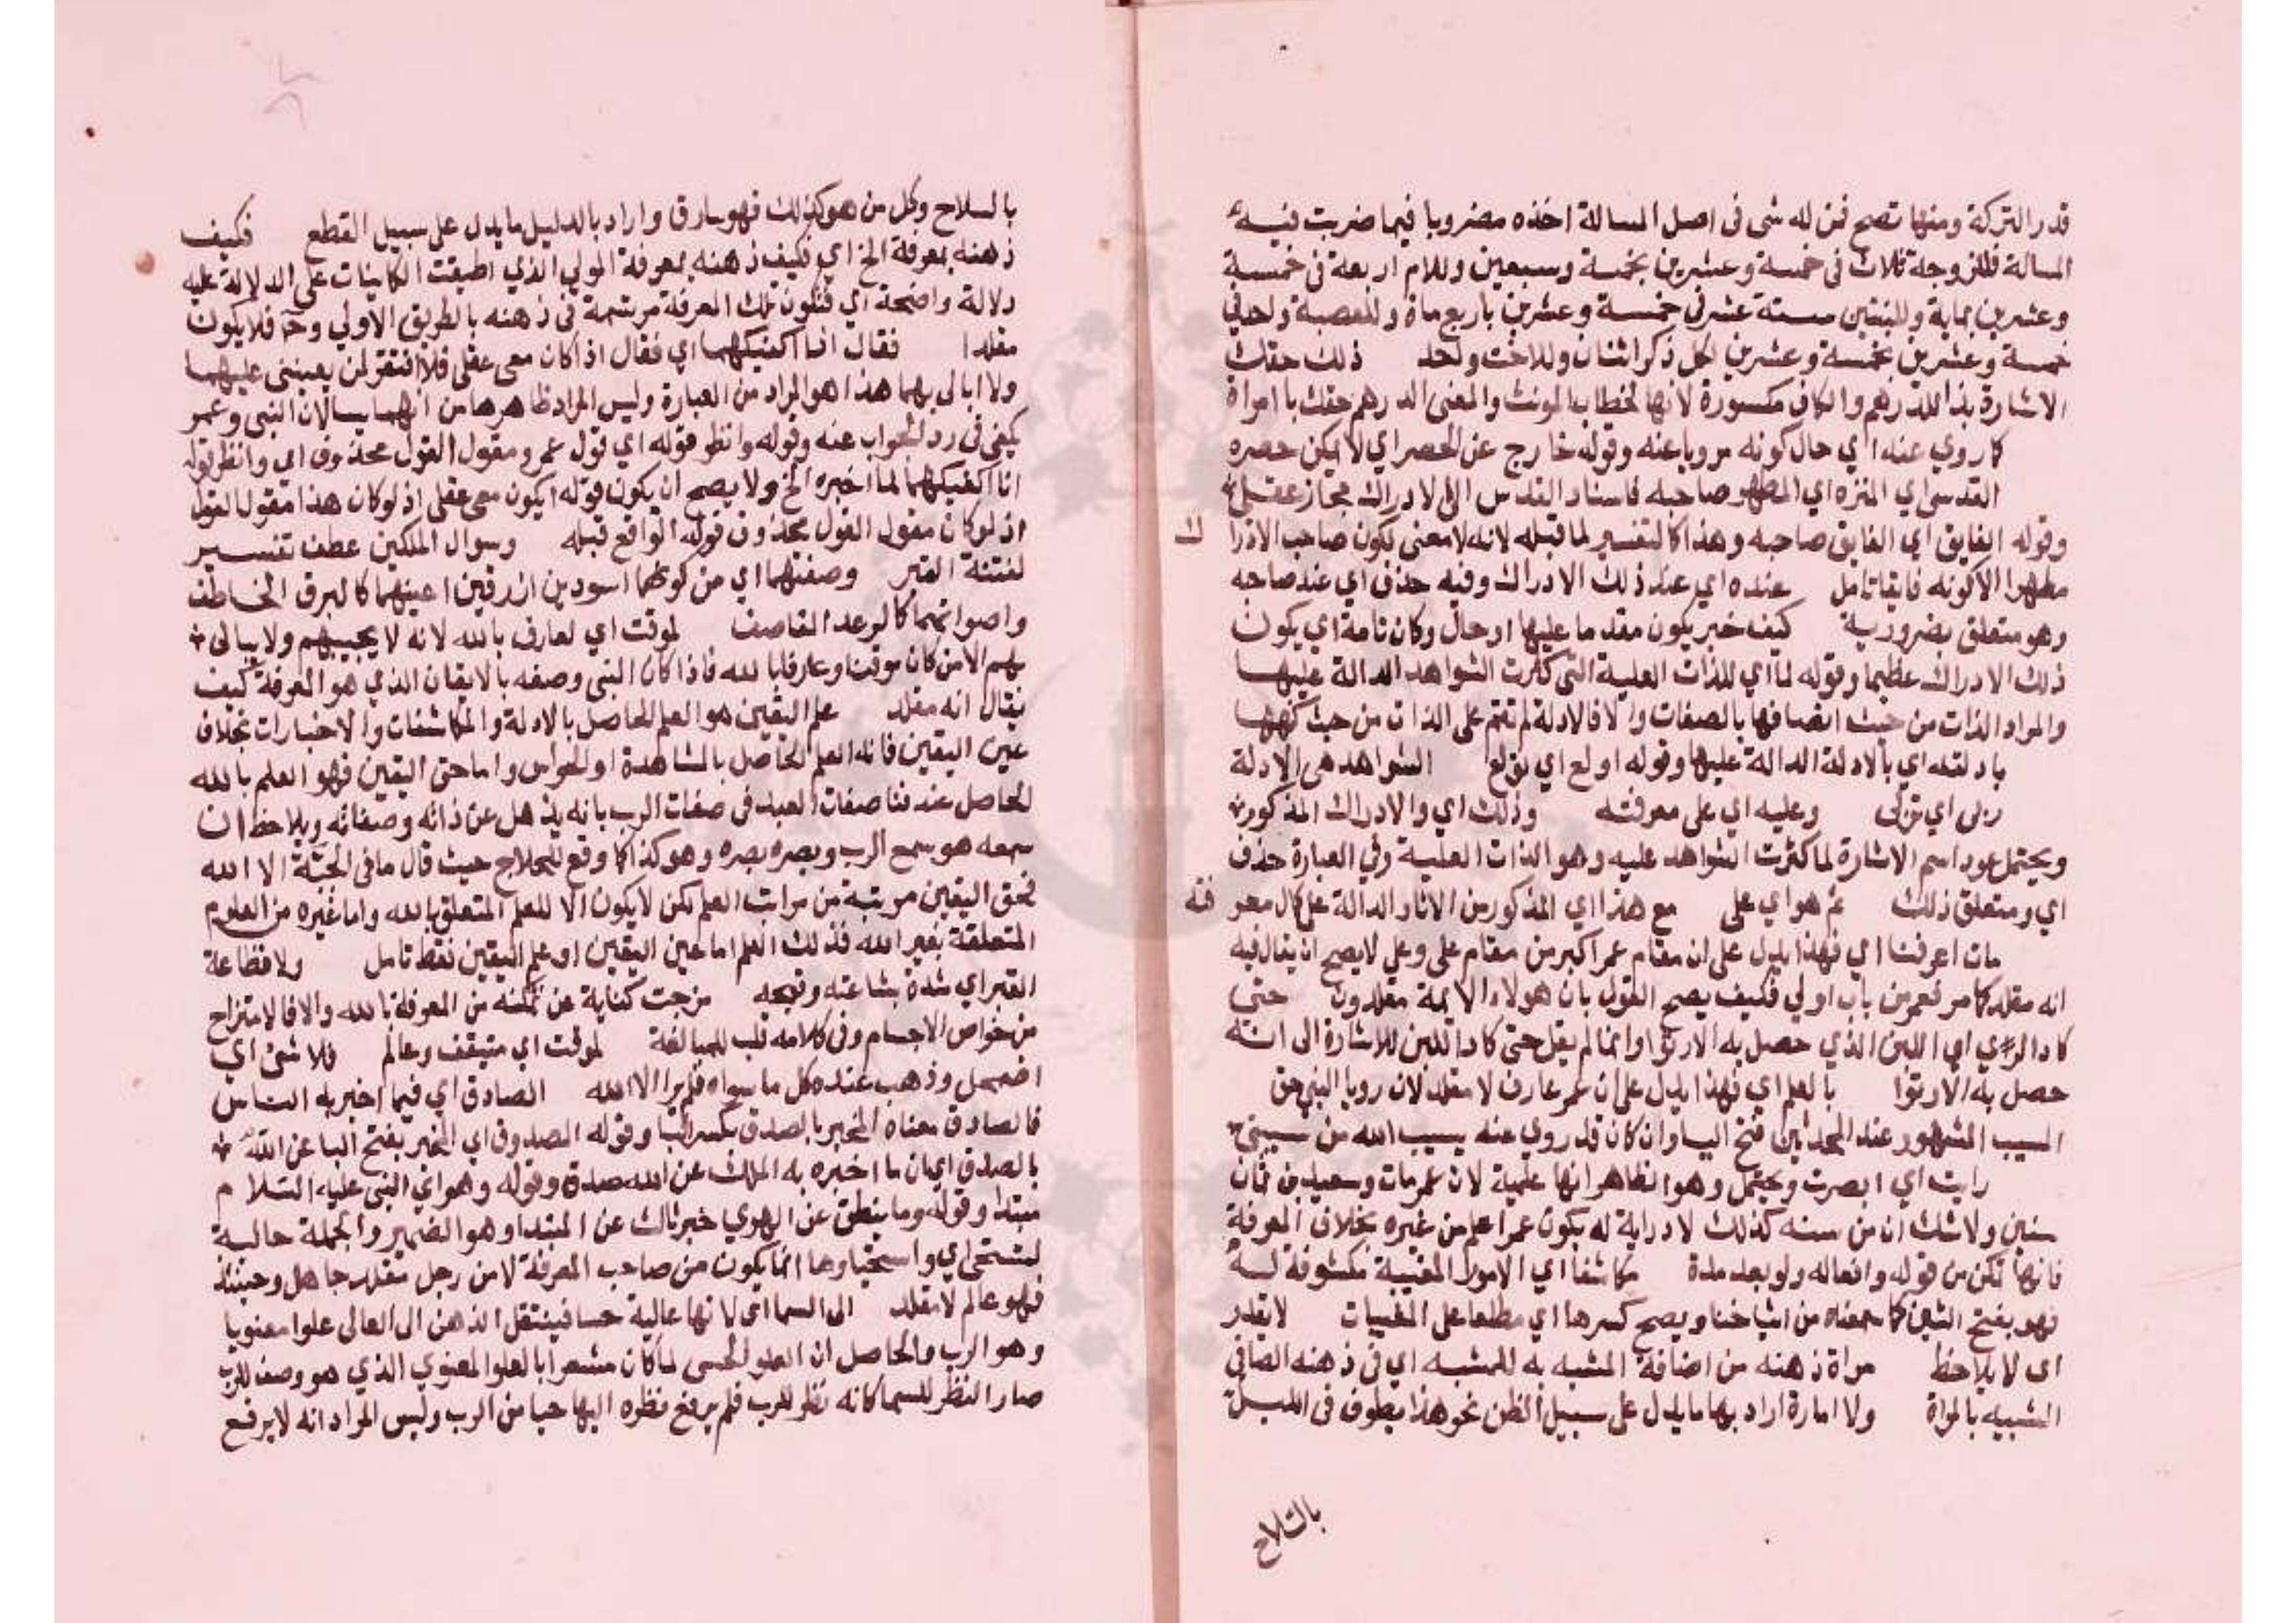 قدر التركة ومنها تصح فمن له شى فى اصل المسالة اخذه مضروبا فيما ضربت فيه
المسالة فللزوجة ثلاث فى خمسة وعشرين بخمسة وسبعين وللام اربعة فى خمسة
وعشرين بماية وللبنتين ستة عشر فى خمسة وعشرين باربع ماة وللعصبة واحد فى
خمسة وعشرين بخمسة وعشرين لكل ذكر اثنان وللاخت واحد ذلك حقك
الاشارة بذا للدرهم والكاف مكسورة لانها لخطاب المونث والمعنى الدرهم حقك يا امراة
كما روي عنه اي حال كونه مرويا عنه وقوله خارج عن الحصر اي لا يمكن حصره
القدسى اي المنزه اي المطهر صاحبه فاسناد القدس الى الادراك مجاز عقلى
وقوله الفايق اي الفايق صاحبه وهذا كالتفسير لما قبله لانه لا معنى لكون صاحب الادراك
مطهرا الا كونه فايقا تامل عنده اي عند ذلك الادراك وفيه حذف اي عند صاحبه
وهو متعلق بضرورية كيف خبر يكون مقدما عليها او حال وكان تامة اي يكون
ذلك الادراك عظيما وقوله لما اي للذات العلية التى كثرت الشواهد الدالة عليها
والمراد الذات من حيث اتصافها بالصفات والا فالادلة لم تقم على الذات من حيث كنهها
بادلته اي بالادلة الدالة عليها وقوله اولع اي تولع الشواهد هى الادلة
ربى اي تربى وعليه اي على معرفته وذلك اي والادراك المذكور
ويحتمل عود اسم الاشارة لما كثرت الشواهد عليه وهو الذات العلية وفي العبارة حذف
اي ومتعلق ذلك ثم هو اي على مع هذا اي المذكور من الاثار الدالة على كمال معرفته
مات اعرفنا اي فهذا يدل على ان مقام عمر اكبر من مقام على وعلي لا يصح ان يقال فيه
انه مقلد كما مر فعمر من باب اولي فكيف يصح القول بان هولاء الايمة مقلدون حتى
كاد الري اي اللبن الذي حصل به الارتوا وانما لم يقل حتى كاد اللبن للاشارة الى انه
حصل به الارتوا بالعلم اي فهذا يدل على ان عمر عارف لا مقلد لان رويا النبى حق
المسيب المشهور عند المحدثين فتح اليا وان كان قد روي عنه يسيب الله من سيبنى
رايت اي ابصرت ويحتمل وهو الظاهر انها علمية لان عمر مات وسعيد بن ثمان
سنين ولا شك ان من سنه كذلك لا دراية له بكون عمر اعلم من غيره بخلاف المعرفة
فانها تمكن من قوله وافعاله ولو بعد مدة مكاشفا اي الامور المغيبة مكشوفة له
فهو بفتح الشين كما سمعناه من اشياخنا ويصح كسرها اي مطلعا على المغيبات لا يقدر
اى لا يلاحظ مراة ذهنه من اضافة المشبه به للمشبه اي فى ذهنه الصافى
الشبيه بالمراة ولا امارة اراد بها ما يدل على سبيل الظن نحو هذا يطوف فى الليل
بالسلاح
بالسلاح وكل من هو كذلك فهو سارق واراد بالدليل ما يدل على سبيل القطع فكيف
ذهنه بمعرفة الخ اي فكيف ذهنه بمعرفة المولي الذي اطبقت الكاينات على الدلالة عليه
دلالة واضحة اي فتكون تلك المعرفة مرتسمة فى ذهنه بالطريق الاولي وح فلا يكون
مقلدا فقال انا اكفيكهما اي فقال اذا كان معى عقلى فلا افتقر لمن يعيننى عليهما
ولا ابالى بهما هذا هو المراد من العبارة وليس المراد ظاهرها من انهما يسالان النبى وعمر
يكفى فى رد الجواب عنه وقوله وانظر قوله اي قول عمر ومقول القول محذوف اي وانظر قوله
انا اكفيكهما لما اخبره الخ ولا يصح ان يكون قوله ايكون معى عقلى اذ لو كان هذا مقول القول
اذ لو كان مقول القول محذوف قوله الواقع قبله وسوال الملكين عطف تفسير
لفتنة القبر وصفتهما اي من كونهما اسودين ازرقين اعينهما كالبرق الخاطف
واصواتهما كالرعد القاصف لموقت اي لعارف بالله لانه لا يجيبهم ولا يبالى
بهم الا من كان موقنا وعارفا بالله فاذا كان النبى وصفه بالايقان الذي هو المعرفة كيف
يقال انه مقلد علم اليقين هو العلم الحاصل بالادلة والمكاشفات والاخبارات بخلاف
عين اليقين فانه العلم الحاصل بالمشاهدة او الحواس واما حق اليقين فهو العلم بالله
الحاصل عند فنا صفات العبد فى صفات الرب بانه يذهل عن ذاته وصفاته ويلاحظ ان
سمعه هو سمع الرب وبصره بصره وهو كذا كما وقع للحلاج حيث قال ما فى الجبة الا الله
فحق اليقين مرتبة من مراتب العلم لكن لا يكون الا للعلم المتعلق بالله واما غيره من العلوم
المتعلقة بغير الله فذلك العلم اما عين اليقين او علم اليقين فقط تامل ولا فظاعة
القبر اي شدة بشاعته وقبحه مزجت كناية عن تمكنه من المعرفة بالله والا فالامتزاج
من خواص الاجسام وفى كلامه قلب للمبالغة لموقت اي متيقف وعالم فلا شئ اي
اضمحل وذهب عنده كل ما سواه فلم ير الا الله الصادق اي فيما اخبر به الناس
فالصادق معناه المخبر بالصدق بكسر البا وقوله المصدوق اي المخبر بفتح البا عن الله
بالصدق اي ان ما اخبره به الملك عن الله صدق وقوله وهو اي النبى عليه السلام
مبتدا وقوله وما ينطق عن الهوي خبر ثالث عن المبتدا وهو الضمير والجملة حالية
لمستحى اي واستحياوها انما يكون من صاحب المعرفة لا من رجل مقلد جاهل وحينئذ
فهو عالم لا مقلد الى السما اى لانها عالية حسا فينتقل الذهن الى العالى علوا معنويا
وهو الرب والحاصل ان العلو الحسى لما كان مشعرا بالعلو المعنوي الذي هو وصف للرب
صار النظر للسما كانه نظر للرب فلم يرفع نظره اليها حيا من الرب وليس المراد انه لا يرفع